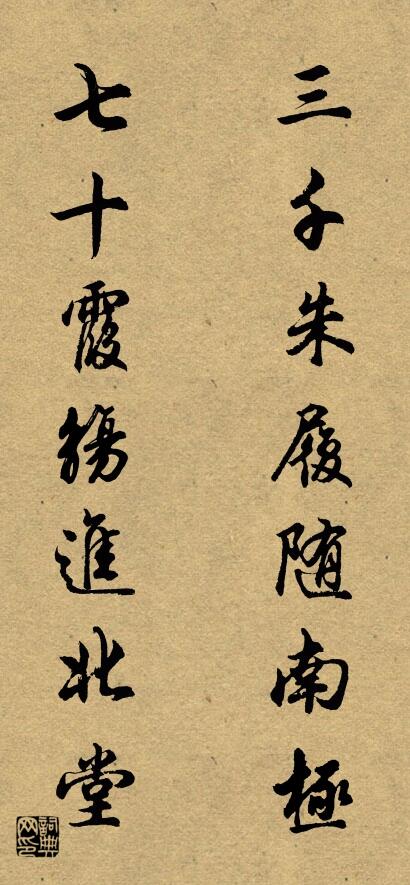 三千朱履随南極
七十霞觴進北堂
詞典网印